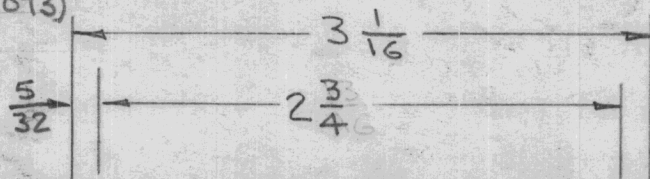 3 1/16
5/32
2 3/4